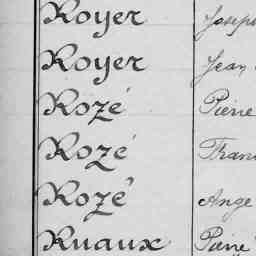 Royer Joseph
Royer Jean
Rozé Pierre
Rozé Fran
Rozé Ange
Ruaux Pierre